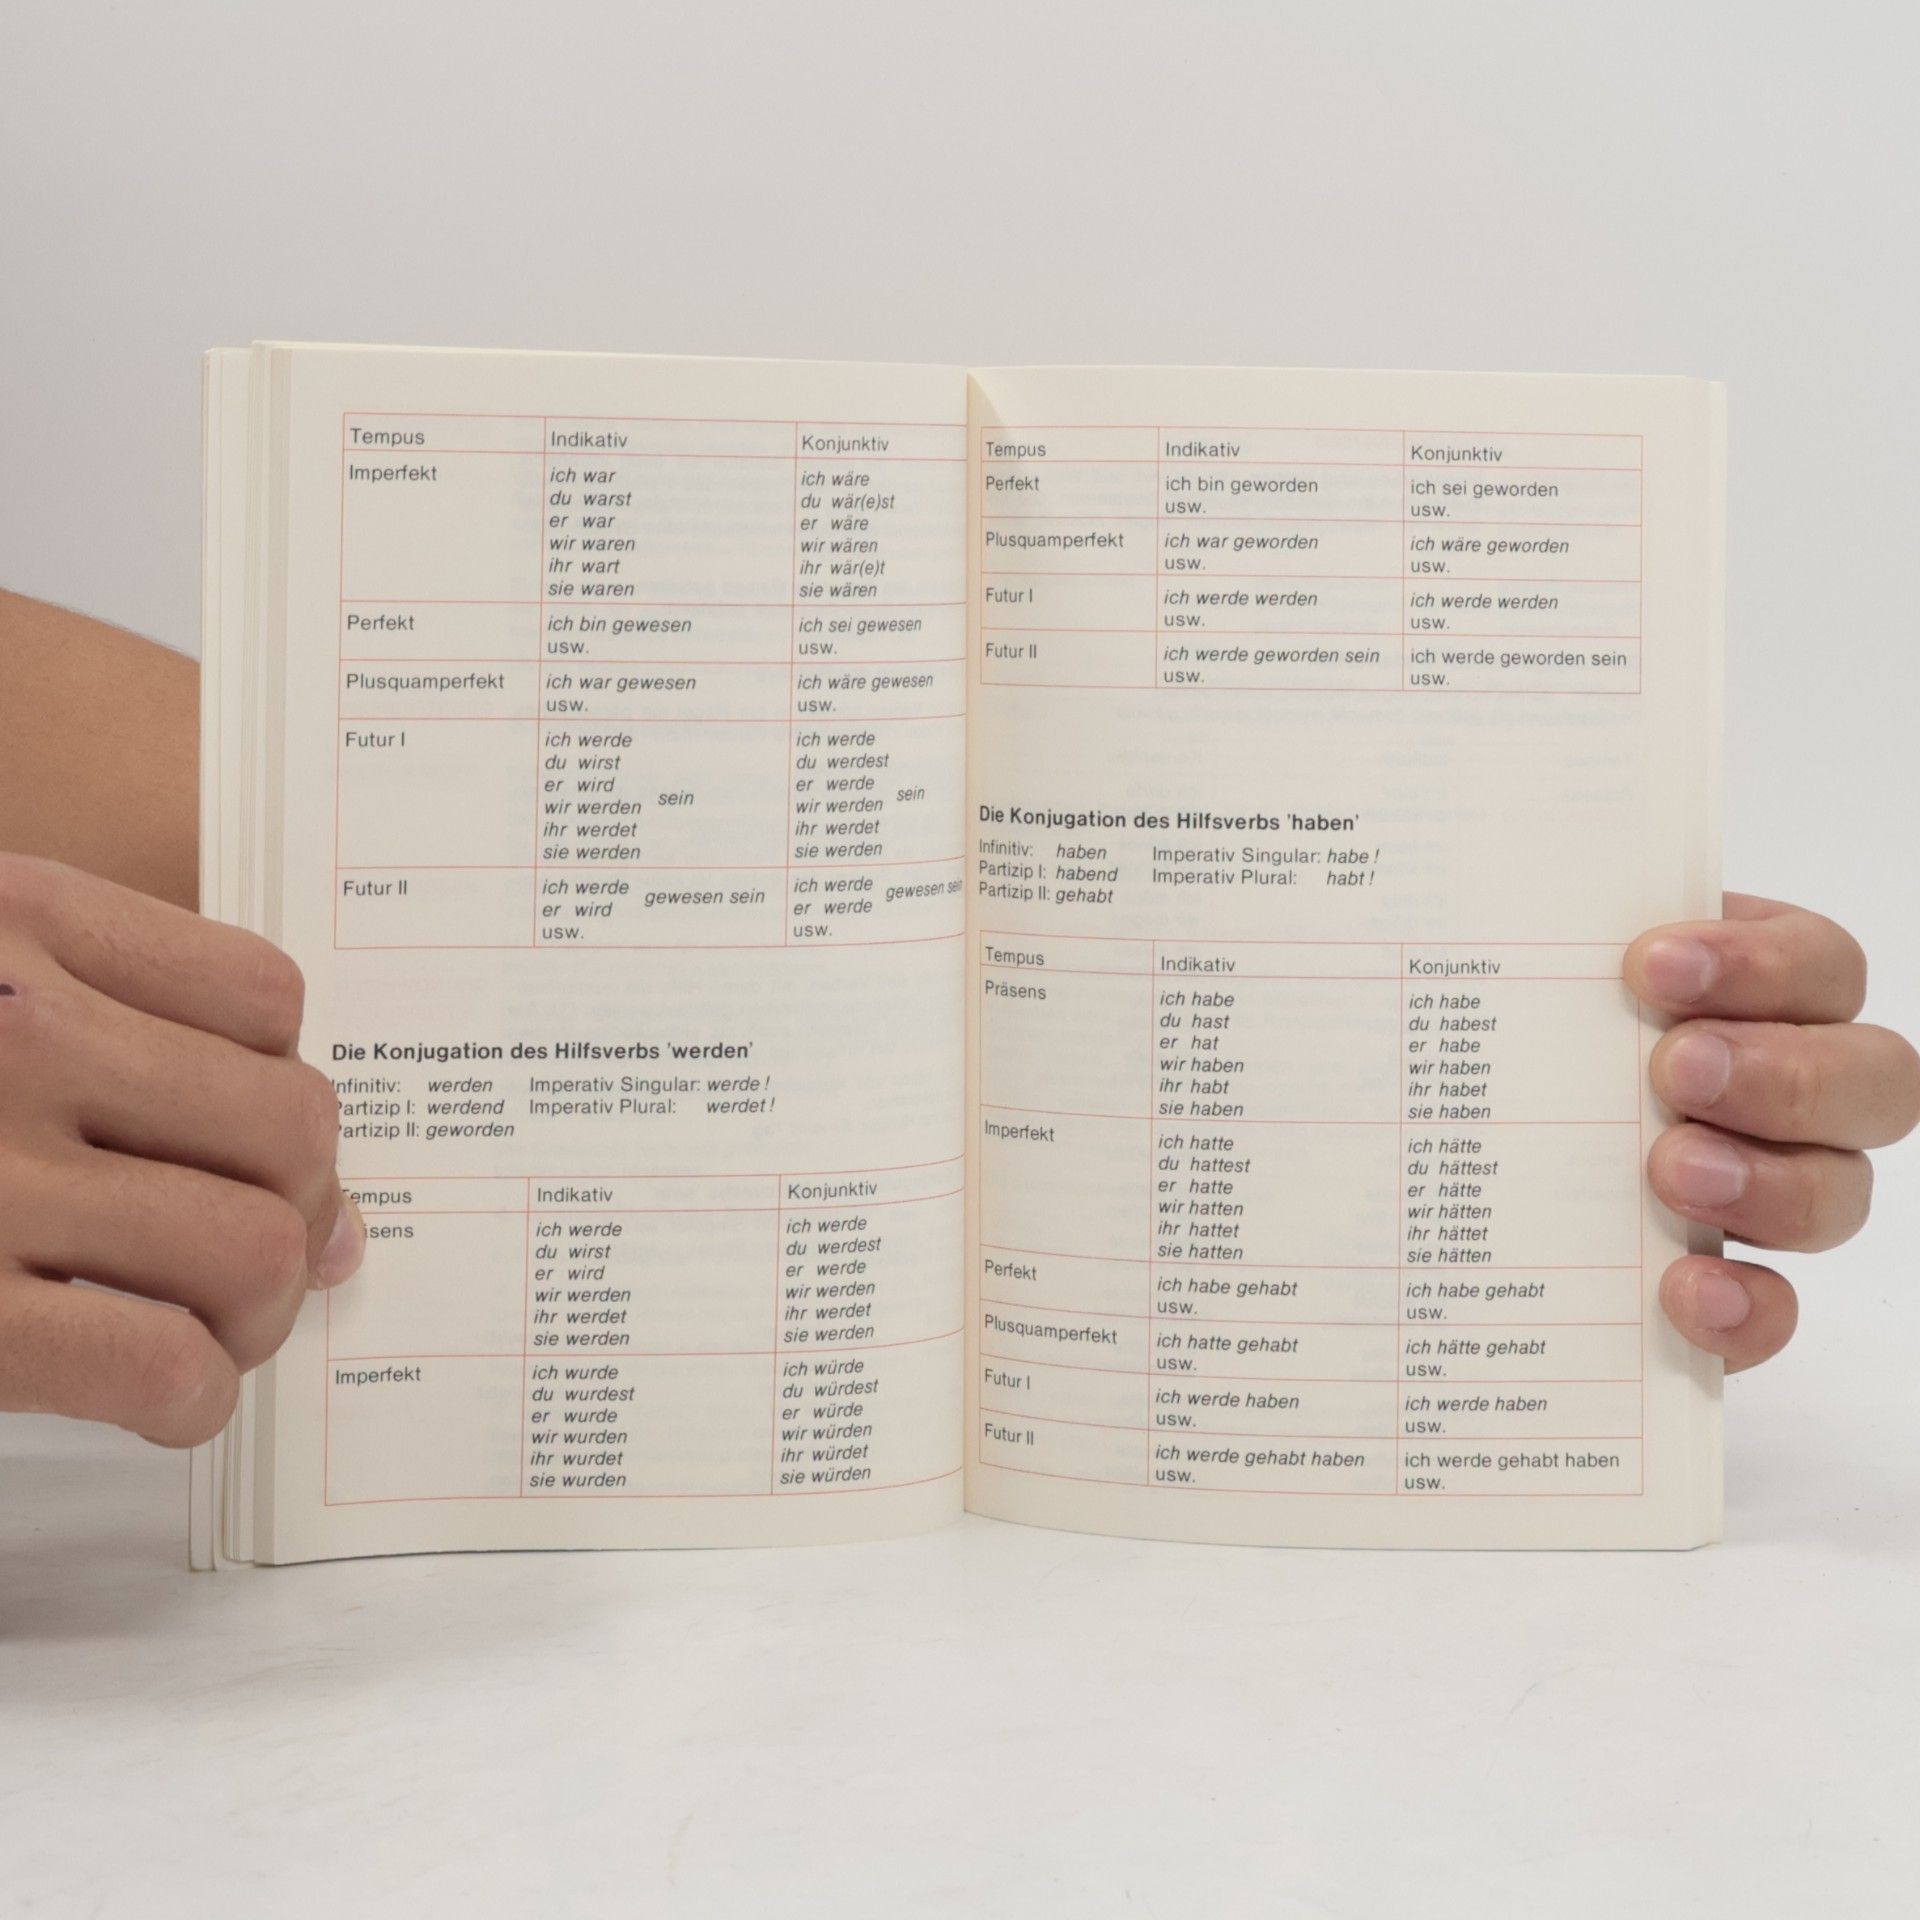 Tempus Indikativ Konjunktiv
Imperfekt ich war ich wäre
du warst du wär(e)st
er war er wäre
wir waren wir wären
ihr wart ihr wär(e)t
sie waren sie wären
Perfekt ich bin gewesen ich sei gewesen
usw. usw.
Plusquamperfekt ich war gewesen ich wäre gewesen
usw. usw.
Futur I ich werde ich werde
du wirst du werdest
er wird er werde
wir werden sein wir werden sein
ihr werdet ihr werdet
sie werden sie werden
Futur II ich werde gewesen sein ich werde gewesen sein
er wird er werde
usw. usw.
Die Konjugation des Hilfsverbs 'werden'
Infinitiv: werden Imperativ Singular: werde !
Partizip I: werdend Imperativ Plural: werdet !
Partizip II: geworden
Tempus Indikativ Konjunktiv
äsens ich werde ich werde
du wirst du werdest
er wird er werde
wir werden wir werden
ihr werdet ihr werdet
sie werden sie werden
Imperfekt ich wurde ich würde
du wurdest du würdest
er wurde er würde
wir wurden wir würden
ihr wurdet ihr würdet
sie wurden sie würden
Tempus Indikativ Konjunktiv
Perfekt ich bin geworden ich sei geworden
usw. usw.
Plusquamperfekt ich war geworden ich wäre geworden
usw. usw.
Futur I ich werde werden ich werde werden
usw. usw.
Futur II ich werde geworden sein ich werde geworden sein
usw. usw.
Die Konjugation des Hilfsverbs 'haben'
Infinitiv: haben Imperativ Singular: habe !
Partizip I: habend Imperativ Plural: habt !
Partizip II: gehabt
Tempus Indikativ Konjunktiv
Präsens ich habe ich habe
du hast du habest
er hat er habe
wir haben wir haben
ihr habt ihr habet
sie haben sie haben
Imperfekt ich hatte ich hätte
du hattest du hättest
er hatte er hätte
wir hatten wir hätten
ihr hattet ihr hättet
sie hatten sie hätten
Perfekt ich habe gehabt ich habe gehabt
usw. usw.
Plusquamperfekt ich hatte gehabt ich hätte gehabt
usw. usw.
Futur I ich werde haben ich werde haben
usw. usw.
Futur II ich werde gehabt haben ich werde gehabt haben
usw. usw.